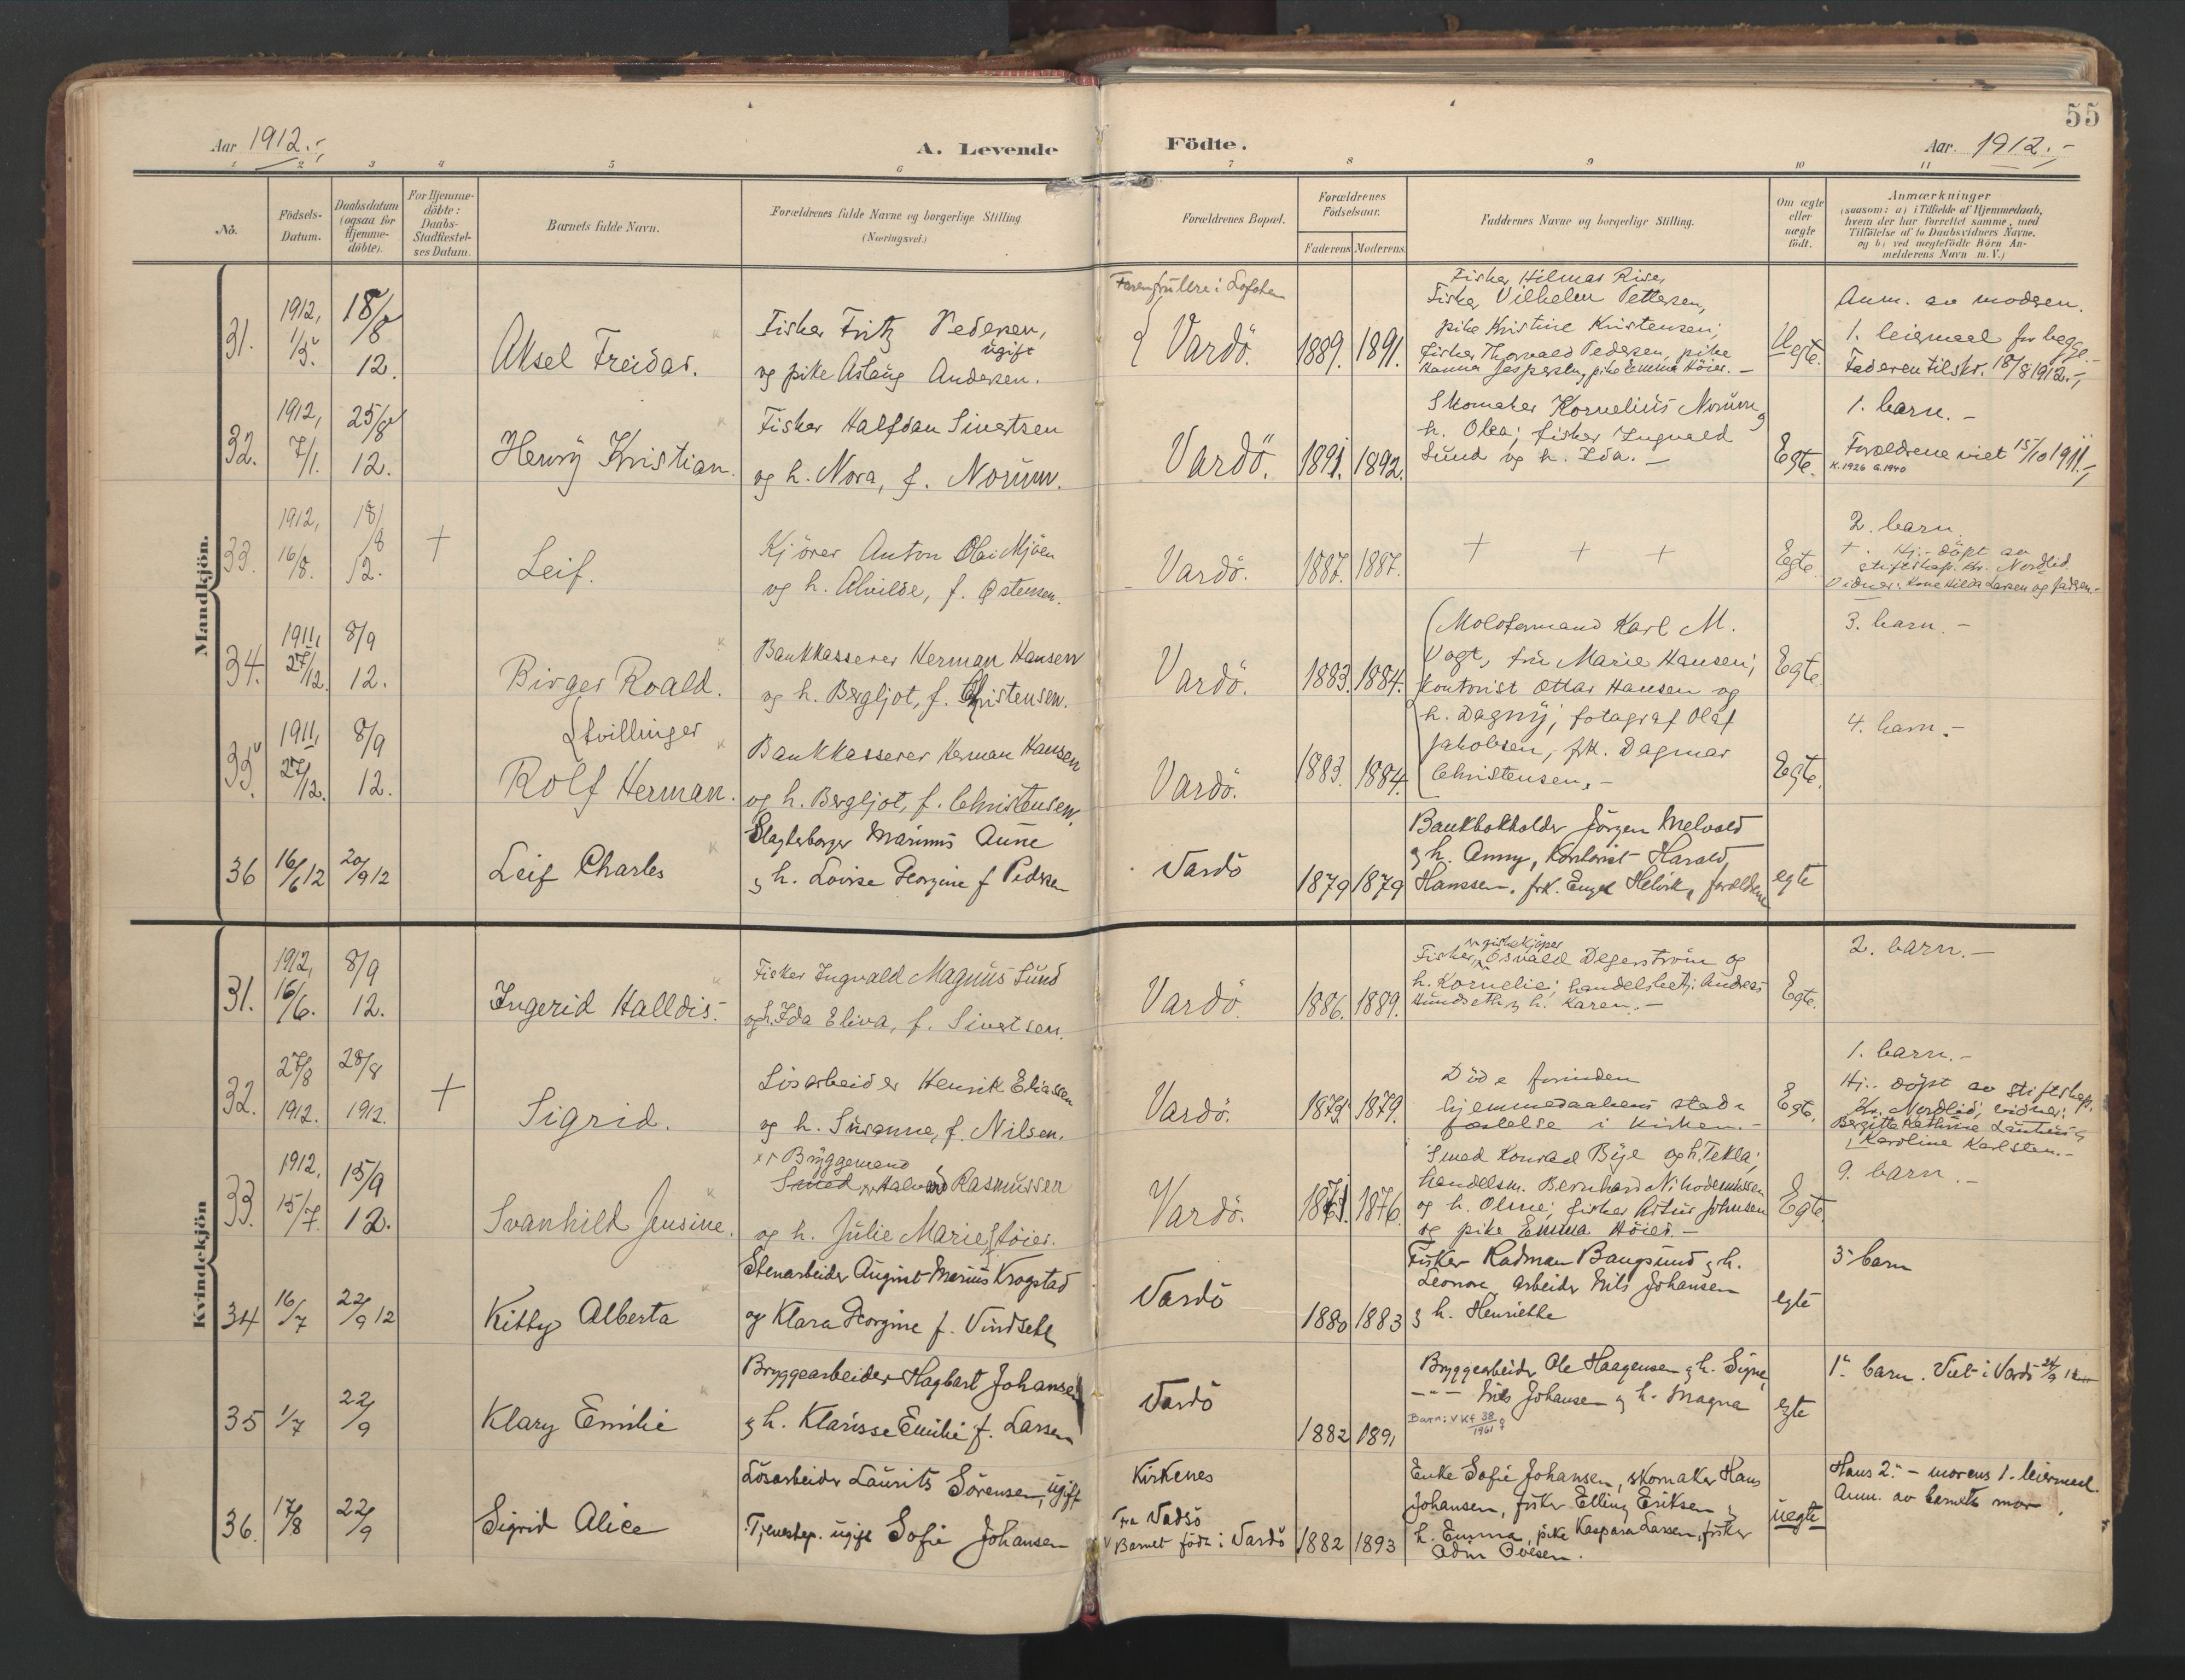 55
Aar 1912.
A. Levende Födte.
Aar. 1912.-
1 2 3 4 5 6 7 8 9 10 11
No.
Födsels-
Datum.
Daabsdatum
(ogsaa for
Hjemme-
döbte).
For Hjemme-
döbte:
Daabs-
Stadfæstel-
ses Datum.
Barnets fulde Navn.
Forældrenes fulde Navne og borgerlige Stilling
(Næringsvei.)
Forældrenes Bopæl.
Forældrenes
Födselsaar.
Faderens Moderens
Faddernes Navne og borgerlige Stilling.
Om ægte
eller
uægte
födt.
Anmærkninger
(saasom: a) i Tilfælde af Hjemmedaab,
hvem der har forrettet samme, med
Tilföielse af to Daabsvidners Navne.
og b) ved uægtefödte Börn An-
melderens Navn m. V.)
Mandkjön.
31.
1912,
1/5
18/8
12.
Aksel Freidar.
Fisker Fritz Pedersen,
ugift
og pike Aslaug Andersen.
i Lofoten
Vardö.
1889. 1891.
Fisker Hilmar Riise,
Fisker Vilhelm Pettersen,
pike Kristine Kristensen;
fisker Thorvald Pedersen, pike
Hanna Jespersen, pike Emma Höier. -
Uegte.
Anm. av moderen.
1. leiermaal for begge. -
Faderen tilskr. 18/8 1912. -
32.
1912,
7/1.
25/8
12.
Henry Kristian.
Fisker Halfdan Sivertsen
og h. Nora, f. Norum.
Vardö.
1891. 1892.
Skomaker Kornelius Norum og
h. Olea; fisker Ingvald
Sund og h. Ida. -
Egte.
1. barn. -
Forældrene viet 15/10 1911. -
K. 1926 G. 1940
33.
1912,
16/8.
18/8
12.
+
Leif.
Kjörer Anton Olai Mjöen
og h. Alvilde, f. Østensen.
Vardö.
1887. 1887.
+ + +
Egte.
2. barn.
+. Hj.-döpt av
stiftskap. Kr. Nordlid.
Vidner: Kone Hilda Larsen og faderen. -
34.
1911,
27/12.
8/9
12.
Birger Roald.
Bankkasserer Herman Hansen
og h. Bergljot, f. Christensen.
Vardö.
1883. 1884.
Moloformand Karl M.
Vogt, fru Marie Hansen;
kontorist Ottar Hansen og
h. Dagny; fotograf Olaf
Jakobsen, frk. Dagmar
Christensen. -
Egte.
3. barn. -
tvillinger
35.
1911,
27/12.
8/9
12.
Rolf Herman.
Bankkasserer Herman Hansen
og h. Bergljot, f. Christensen.
Vardö.
1883. 1884.
Egte.
4. barn. -
36
16/6 12
20/9 12
Leif Charles
Slagterborger Marinus Aune
og h. Lovise Georgine f Pedersen
Vardö
1879 1879
Bankbokholder Jörgen Melvold
og h. Anny, Kontorist Harald
Hanssen, frk. Engel Helvik, forældrene
egte
Kvindekjön
31.
1912,
16/6.
8/9
12.
Ingerid Halldis. -
Fisker Ingvald Magnus Sund
og h. Ida Eliva, f. Sivertsen.
Vardö.
1886. 1889.
og fiskekjöper
Fisker, Osvald Degerström og
h. Kornelie; handelsbetj. Andreas
Hundseth og h. Karen. -
Egte.
2. barn. -
32.
27/8
1912.
28/8
1912.
+
Sigrid.
Lösarbeider Henrik Eliassen
og h. Susanne, f. Nilsen.
Vardö.
1879. 1879.
Döde forinden
hjemmedaabens stad-
fæstelse i kirken. -
Egte.
1. barn. -
Hj.. döpt av stiftskap.
Kr. Nordlid; vidner:
Bergitte Kathrine
Karoline Karlsten. -
33.
1912,
15/7.
15/9
12.
Svanhild Jensine.
Bryggemand
Smed Halvard Rasmussen
og h. Julie Marie f. Höier.
Vardö.
1871. 1876.
Smed Konrad Bye og h. Tekla;
handelsm. Bernhard Nikodemussen
og h. Oline; fisker Artur Johnsen
og pike Emma Höier. -
Egte.
9. barn. -
34
16/7
22/9 12
Kitty Alberta
Stenarbeider August Marius Krogstad
og Klara Georgine f. Vindseth
Vardö
1880 1883
Fisker Radman Baugsund og h.
Leonore, arbeider Nils Johansen
og h. Henriette
egte
5 barn
35
1/7
22/9
Klary Emilie
Bryggearbeider Hagbart Johansen
og h. Klarisse Emilie f. Larsen
Vardö
1882 1891
Bryggearbeider Ole Haagensen og h. Signe,
-"- Nils Johansen og h. Magna
Barn: v Kf 38/1961
egte
1. barn. Viet i Vardö 22/9 12
36.
17/8
22/9
Sigrid Alice
Lösarbeider Laurits Sörensen, ugift
Tjenestep. ugift Sofie Johansen
Kirkenes
fra Vadsö
Barnet födt i Vardö
1882 1893
Enke Sofie Johansen, skomaker Hans
Johansen, fisker Elling Eriksen og
h. Emma, pike Kaspara Larsen, fisker
Adur Ovesen.
uegte
Hans 2. - morens 1. leiermaal.
Anm. av barnets mor.